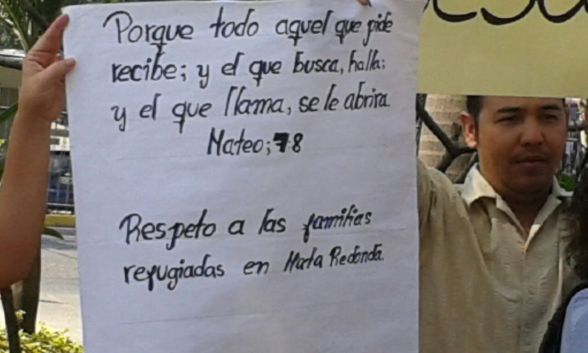 Porque todo aquel que pide
recibe; y el que busca, halla;
y el que llama, se le abrira
Mateo; 7 8
Respeto a las familias
refugiadas en Mata Redonda.